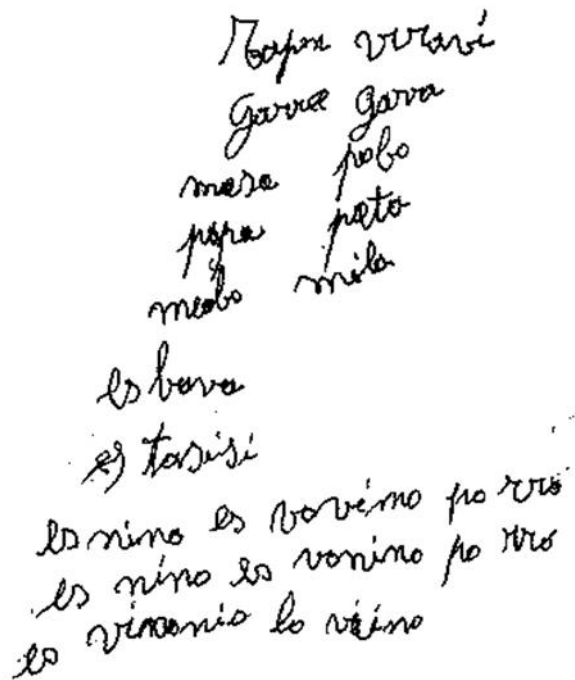 Garra gava
masa pobo
papa pato
meobo mila
es bava
es tasisi
es nino es vovimo po rro
es nino es vonino po rro
es vinonio lo viino